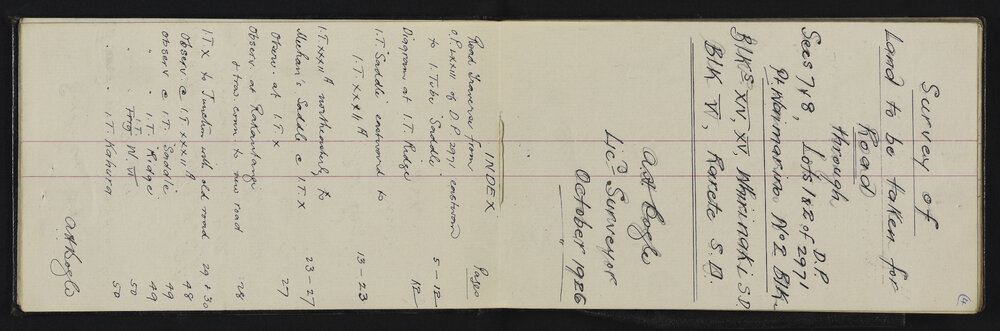 (4)
Survey of
Land to be taken for
Road
through
Secs 7 & 8, Lots 1 & 2 of D.P. 2971
Pt Waimarino No 2 Blk
Blks XIV, XV, Maringki S.D.
Blk VI, Rarete S.D.
A H Bogle
Licd Surveyor
October 1926
INDEX
Pages
Road Traverse from
O.P. XXIII of D.P. 2971 eastward
to I.T. Saddle 5-12
Diagram at I.T. Ridge 12
I.T. Saddle eastward to
I.T. XXXII A 13-23
I.T. XXXII A northwards to
Meehan's Saddle @ I.T. X 23-27
Observ. at I.T. X 27
Observ. at
& trav. conn to new road 28
I.T. X to Junction with old road 29 & 30
Observ @ I.T. XXXII A 48
Observ @ I.T. Saddle 49
" " I.T. Ridge 49
" " Trig W. VI 50
" " I.T. Kahura 50
A H Bogle